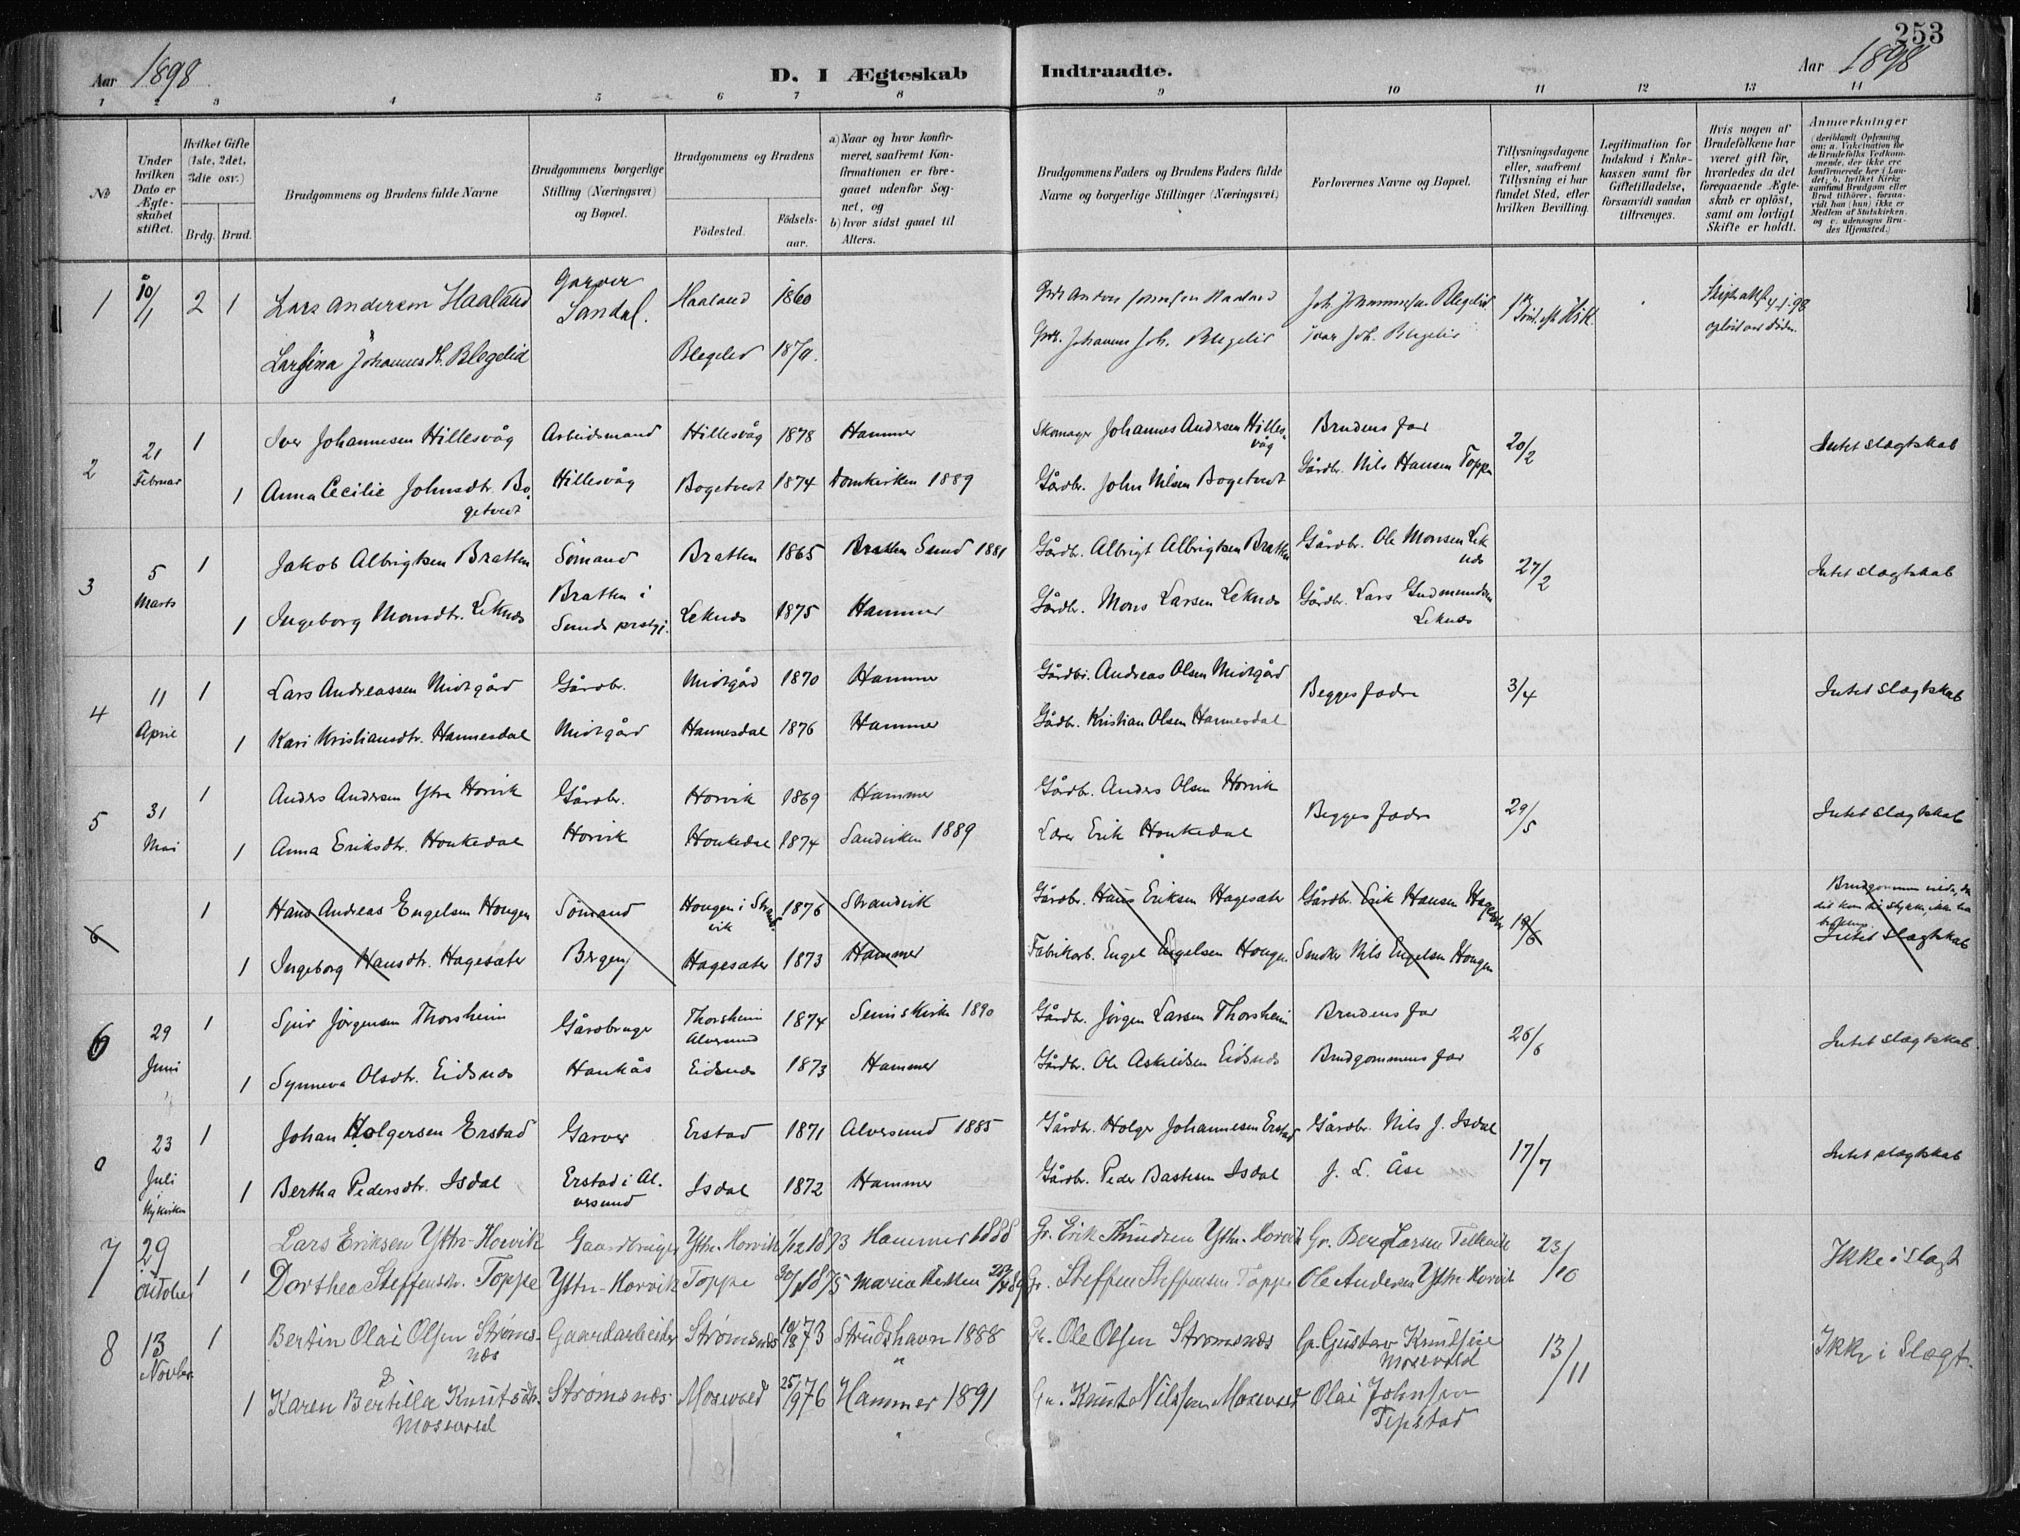 253
Aar 1898
D. I Ægteskab Indtraadte.
Aar 1898
1 2 3 4 5 6 7 8 9 10 11 12 13 14
No
Under hvilken Dato er Ægteskabet stiftet.
Hvilket Gifte (1ste, 2det, 3die osv.)
Brdg. Brud.
Brudgommens og Brudens fulde Navne
Brudgommens borgerlige Stilling (Næringsvei) og Bopæl.
Brudgommens og Brudens
Fødested.
Fødselsaar.
a) Naar og hvor konfirmeret, saafremt Konfirmationen er foregaaet udenfor Sognet, og
b) hvor sidst gaaet til Alters.
Brudgommens Faders og Brudens Faders fulde Navne og borgerlige Stillinger (Næringsvei)
Forlovernes Navne og Bopæl.
Tillysningsdagene eller, saafremt Tillysning ei har fundet Sted, efter hvilken Bevilling.
Legitimation for Indskud i Enkekassen samt for Giftetilladelse, forsaavidt saadan tiltrænges.
Hvis nogen af Brudefolkene har været gift før, hvorledes da det foregaaende Ægteskab er opløst, samt om lovligt Skifte er holdt.
Anmærkninger
(deriblandt Oplysning om: a. Vakcination for de Brudefolks Vedkommende, der ikke ere konfirmerede her i Landet; b. hvilket Kirkesamfund Brudgom eller Brud tilhører, forsaavidt han (hun) ikke er Medlem af Statskirken, og c. udensogns Brudes Hjemsted.)
1 10/1 2 1 Lars Anderson Haaland Garver Sandal. Haaland 1860
Johannesdt. Blegelid Blegelid
Johannes Joh. Blegelid Ivar Joh. Blegelid
2 21 Februar 1 Iver Johannesen Hillesvåg Arbeidsmand Hillesvåg 1878 Hammer Skomager Johannes Andersen Hillesvåg Brudens far 20/2 Intet slægtskab
1 Anna Cecilie Johnsdtr. Bogetvedt Hillesvåg Bogetvedt 1874 Domkirken 1889 Gårdbr. John Nilsen Bogetvedt Gårdbr. Nils Hansen Toppe
3 5 Marts 1 Jakob Albrigtsen Bratten Sömand Bratten 1865 Bratten Sund 1881 Gårdbr. Albrigt Albrigtsen Bratten Gårdbr. Ole Monsen Leknes 27/2 Intet slægtskab
1 Ingeborg Monsdtr. Leknes Bratten i Sunds prstgj. Leknes 1875 Hammer Gårdbr. Mons Larsen Leknes Gårdbr. Lars Gudmundsen Leknes
4 11 April 1 Lars Andreassen Midtgård Gårdbr. Midtgård 1870 Hammer Gårdbr. Andreas Olsen Midtgård Begges fædre 3/4 Intet slægtskab
1 Kari Kristiansdtr. Hannesdal Midtgård Hannesdal 1876 Hammer Gårdbr. Kristian Olsen Hannesdal
5 31 Mai 1 Anders Andersen Ytre Horvik Gårdbr. Horvik 1869 Hammer Gårdbr. Anders Olsen Horvik Begges fædre 29/5 Intet slægtskab
1 Anna Eriksdtr. Houkedal Horvik Houkedal 1874 Sandviken 1889 Lærer Erik Houkedal
6 1 Hans Andreas Engelsen Hougen Sömand Hougen i Strandvik 1876 Strandvik Gårdbr. Hans Eriksen Hagesæter Gårdbr. Erik Hansen Hagesæter
1 Ingeborg Hansdtr. Hagesæter Bergen Hagesæter 1873 Hammer Fabrikarb. Engel Engelsen Hougen Nils Engelsen Hougen Intet slægtskab
6 29 Juni 1 Sjur Jörgensen Thorsheim Gårdbruger Thorsheim Alversund 1874 Seims Kirke 1890 Gårdbr. Jörgen Larsen Thorsheim Brudens far 26/6 Intet slægtskab.
1 Synneva Olsdtr. Eidsnes Haukås Eidsnes 1873 Hammer Gårdbr. Ole Askildsen Eidsnes Brudgommens far
0 23 Juli Nykirken 1 Johan Holgersen Erstad Garver Erstad 1871 Alversund 1885 Gårdbr. Holger Johannesen Erstad Gårdbr. Nils J. Isdal 17/7 Intet slægtskab
1 Bertha Pedersdtr. Isdal Erstad i Alversund Isdal 1872 Hammer Gårdbr. Peder Bastesen Isdal J. L. Åse
7 29 Oktober 1 1 Lars Eriksen Yttre-Horvik Gaardbruger Yttre-Horvik Hammer 1888 Gr. Erik Knudsen Yttre-Horvik 23/10 Ikke i Slægt
Dorthea Steffensdtr. Toppe Yttre-Horvik Toppe Gr. Steffen Steffensen Toppe Ole Andersen Yttre Horvik
8 13 Novbr 1 Bertin Olai Olsen Strømsnæs Gaardarbeider Strømsnæs 10/8 73 Strudshavn 1888 Gr. Ole Olsen Strømsnæs 13/11 Ikke i Slægt.
1 Karen Bertille Knutsdtr. Mosevold Strømsnæs 25/9 76 Hammer 1891 Gr. Knut Nilsson Olai Johnsen